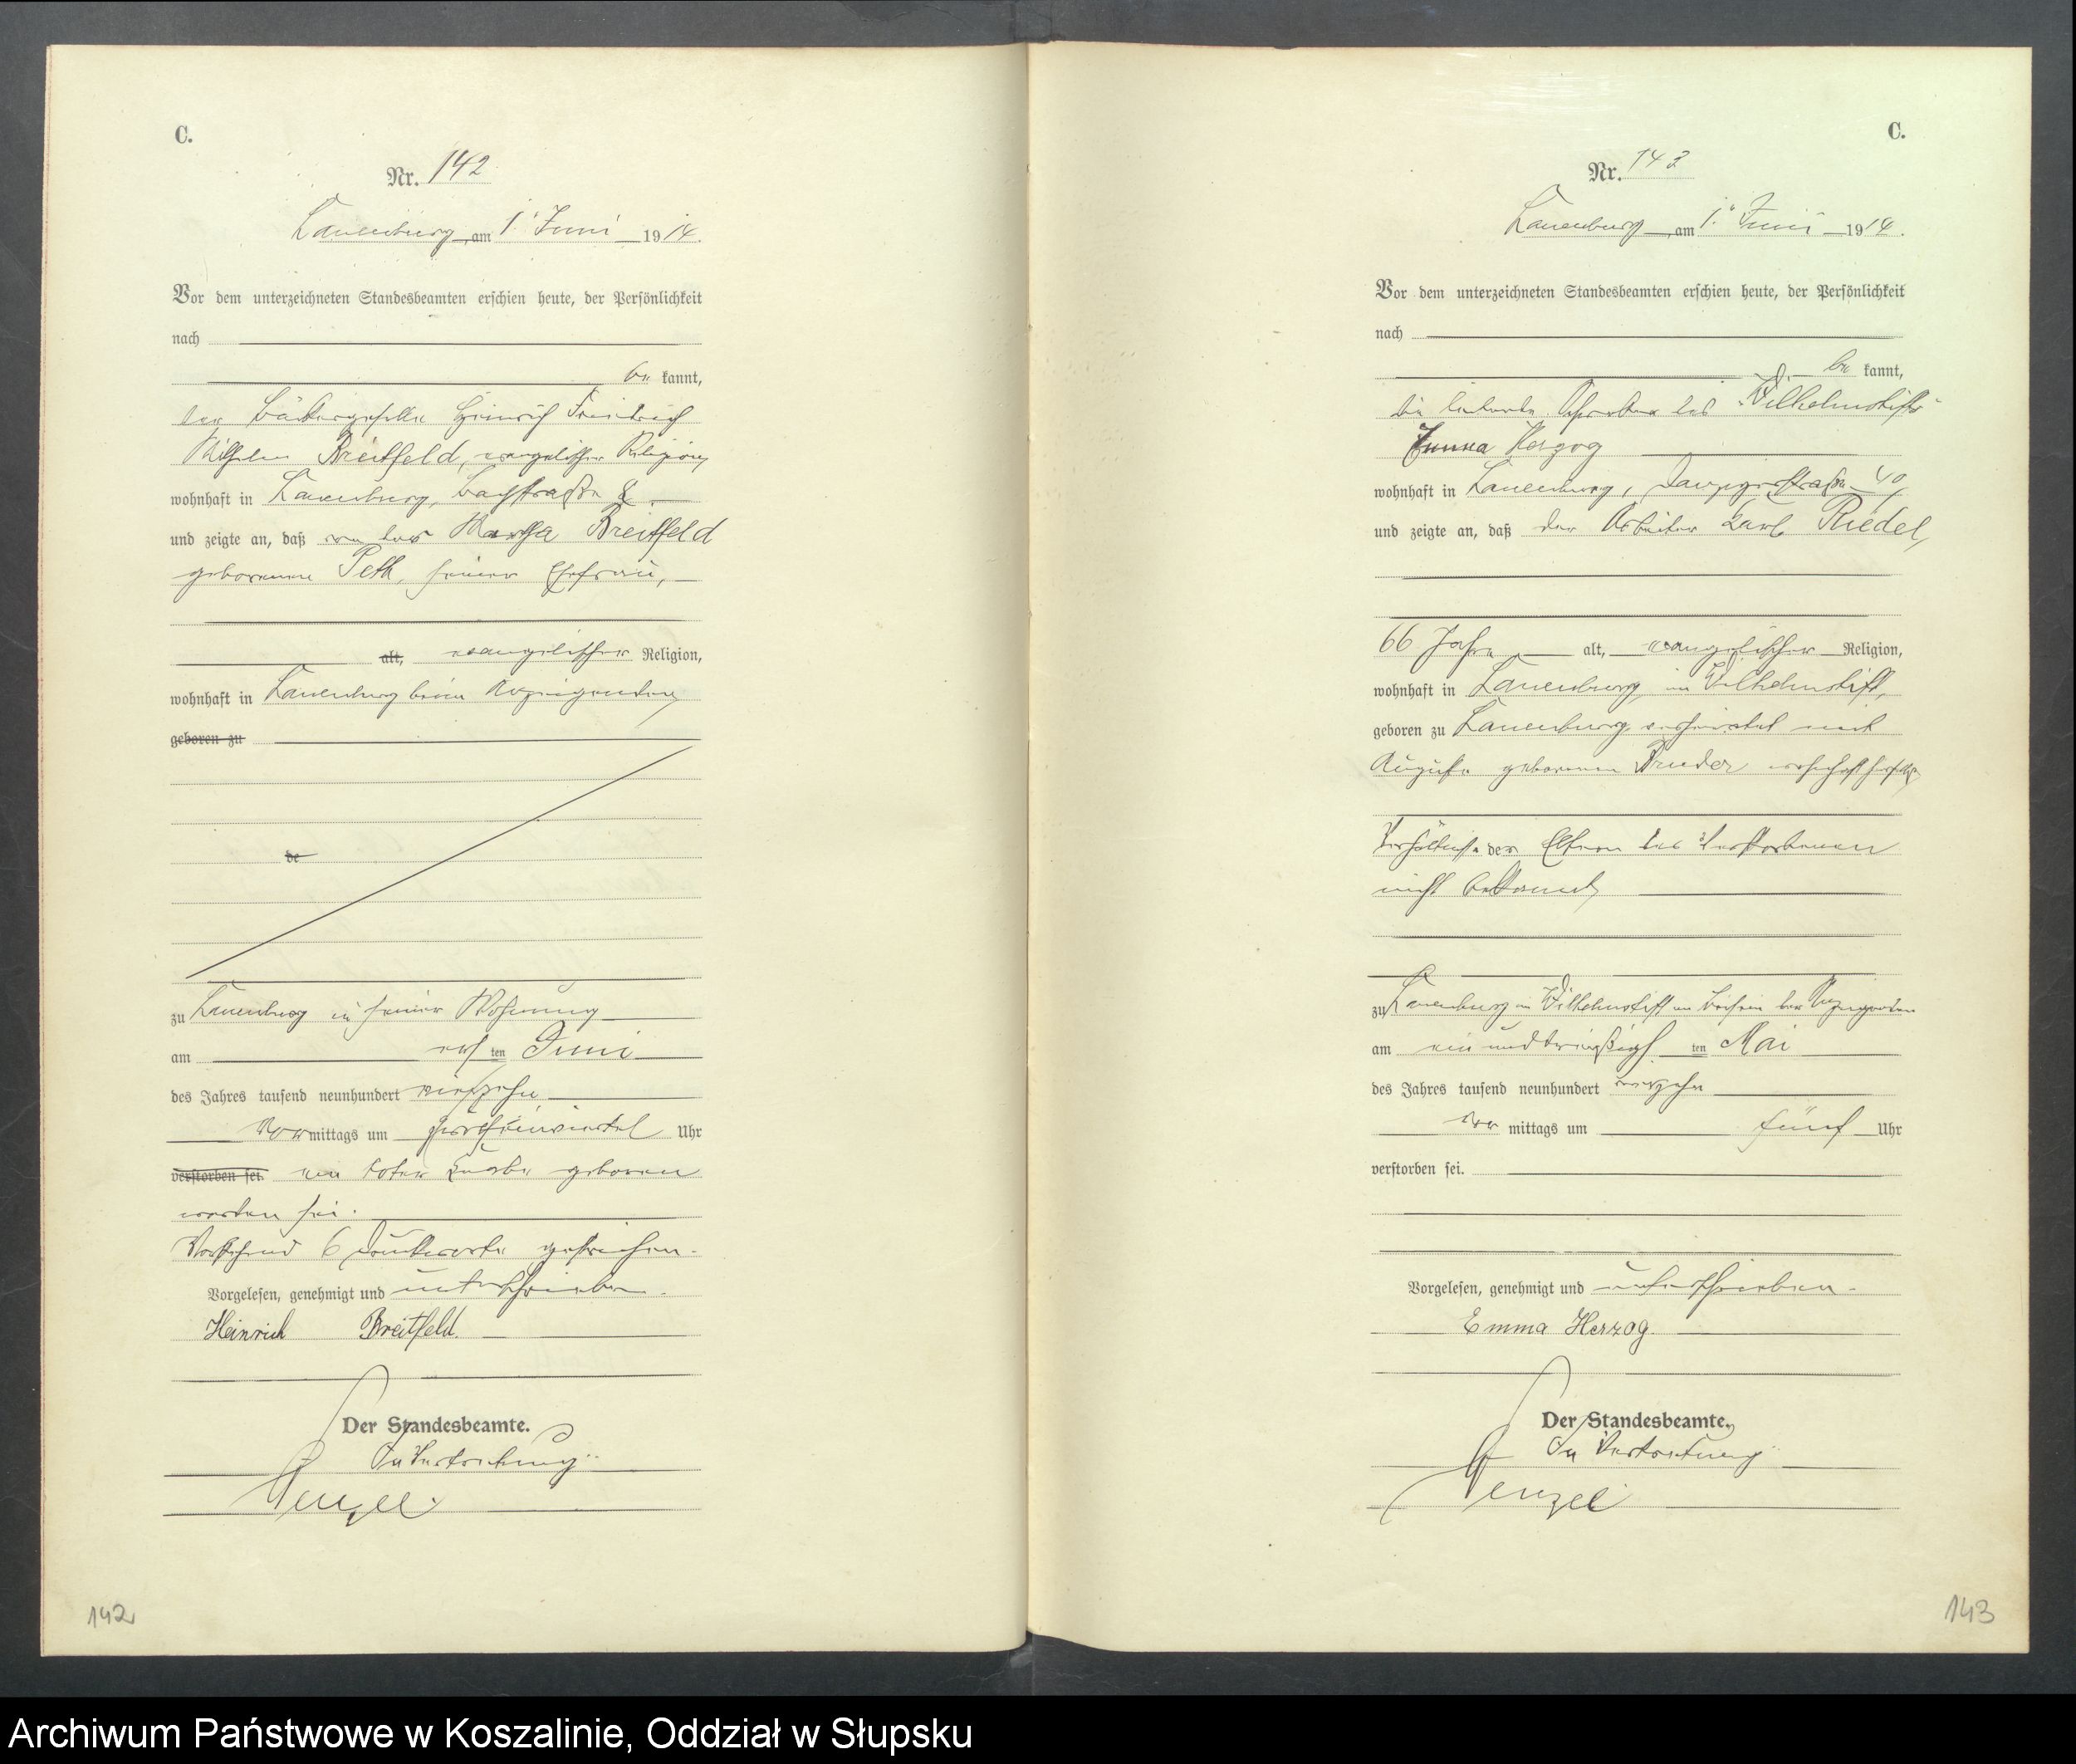 C.
Nr. 142
Lauenburg, am 1. Juni 1914.
Vor dem unterzeichneten Standesbeamten erschien heute, der Persönlichkeit
nach
be kannt,
der Bäckergeselle Heinrich Friedrich
Wilhelm Breitfeld, evangelischer Religion,
wohnhaft in Lauenburg, Bachstraße 8
und zeigte an, daß von der Martha Breitfeld
geborenen Peth, seiner Ehefrau,
alt, evangelischer Religion,
wohnhaft in Lauenburg beim Anzeigenden,
geboren zu
de
zu Lauenburg in seiner Wohnung
am ersten Juni
des Jahres tausend neunhundert vierzehn
Vor mittags um Uhr
verstorben sei. ein toter Knabe geboren
worden sei.
Vorstehend 6 Druckworte gestrichen.
Vorgelesen, genehmigt und unterschrieben.
Heinrich Breitfeld.
Der Standesbeamte.
In Vertretung.
142
C.
Nr. 143
Lauenburg, am 1. Juni 1914.
Vor dem unterzeichneten Standesbeamten erschien heute, der Persönlichkeit
nach
be kannt,
die des Wilhelmstifts
Emma Herzog
wohnhaft in Lauenburg, Danzigerstraße 40,
und zeigte an, daß der Arbeiter Karl Riedel,
66 Jahre alt, evangelischer Religion,
wohnhaft in Lauenburg, im Wilhelmstift,
geboren zu Lauenburg, verheiratet mit
Auguste geborenen Bruder
Verhältnisse der Eltern des Verstorbenen
nicht bekannt,
zu Lauenburg im Wilhelmstift im Beisein der Anzeigenden
am ein und dreißigsten Mai
des Jahres tausend neunhundert vierzehn
vor mittags um fünf Uhr
verstorben sei.
Vorgelesen, genehmigt und unterschrieben.
Emma Herzog.
Der Standesbeamte.
In Vertretung.
143
Archiwum Państwowe w Koszalinie, Oddział w Słupsku